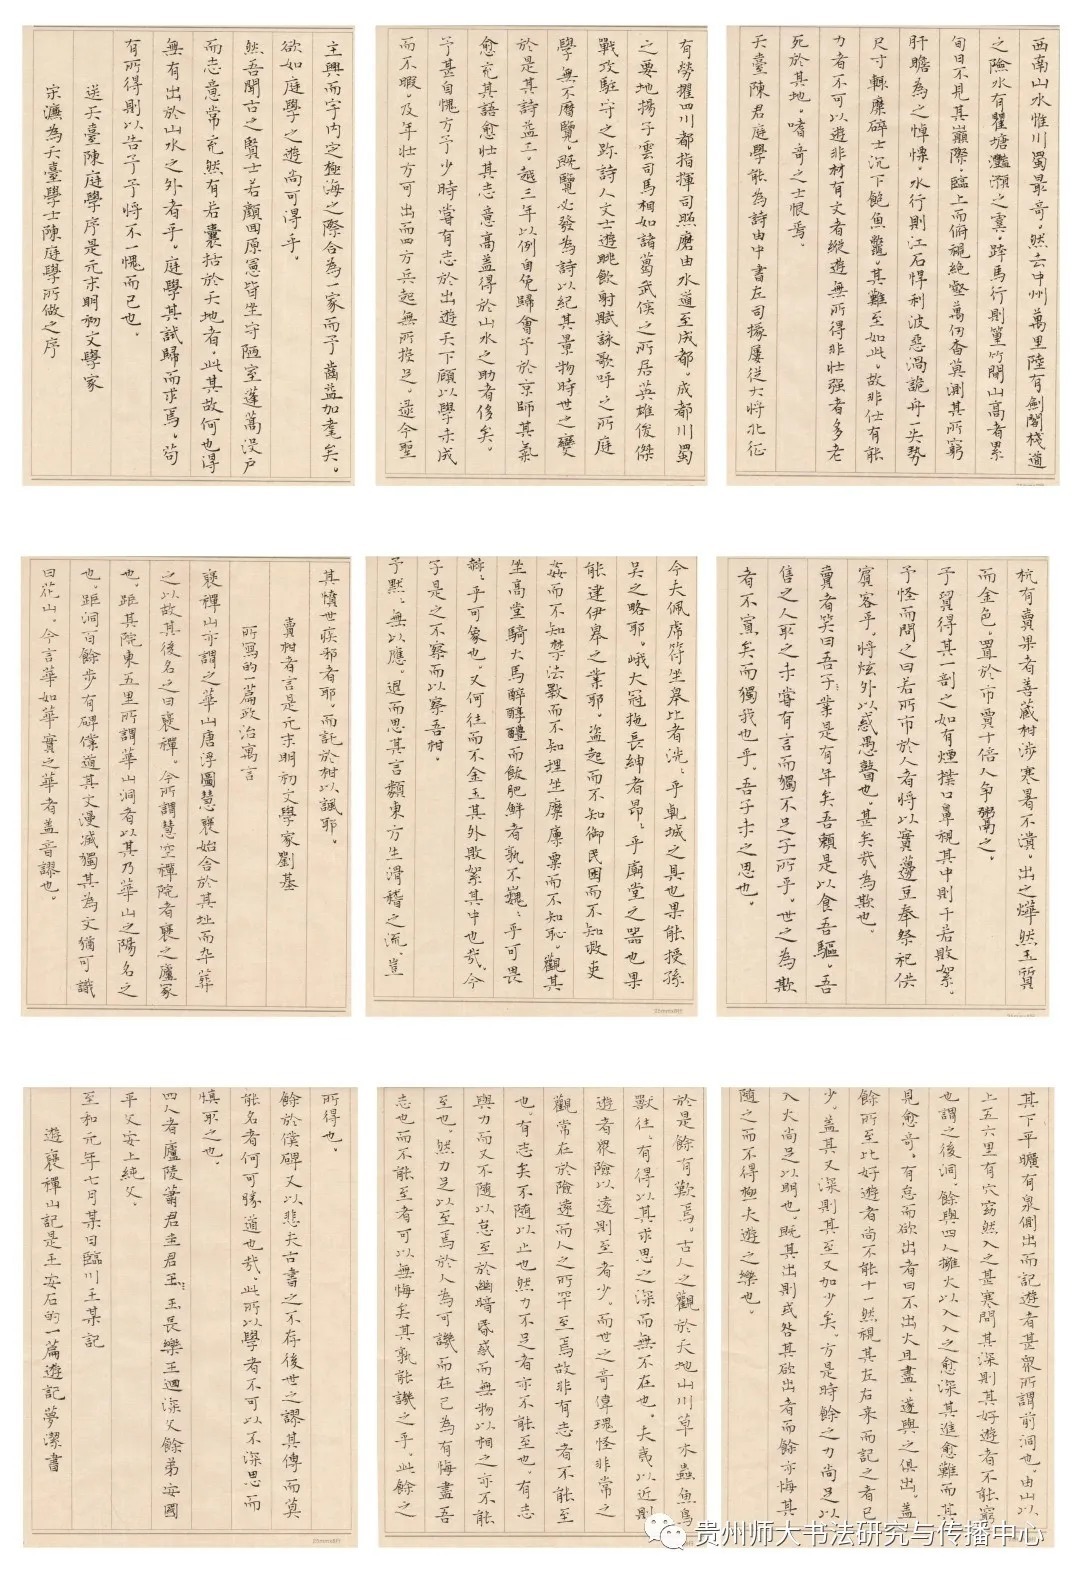 西南山水惟川蜀最奇。然去中州萬里陸有劍閣棧道
之險水有瞿塘灩澦之虞。跨馬行則篁竹閒山高者累
旬日不見其巔際。臨上而俯視絕壑萬仞杳莫測其所窮
肝膽為之悼慄。水行則江石悍利波惡渦詭舟一失勢
尺寸輒糜碎土沉下飽魚鱉。其難至如此。故非仕有能
力者不可以遊非材有文者縱遊無所得非壯强者多老
死於其地。嗜奇之士恨焉。
天臺陳君庭學能為詩由中書左司掾屢從大將北征
有勞擢四川都指揮司照磨由水道至成都。成都川蜀
之要地揚子雲司馬相如諸葛武侯之所居英雄俊傑
戰攻駐守之跡詩人文士遊眺飲射賦詠歌呼之所庭
學無不曆覽。既覽必發為詩以紀其景物時世之變
於是其詩益工。越三年以例自免歸會予於京師其氣
愈充其語愈壯其志意高蓋得於山水之助者侈矣。
予甚自愧方予少時嘗有志於出遊天下顧以學未成
而不暇。及年壯方可出而四方兵起無所投足。逮今聖
主興而宇内定極海之際合為一家而予齒益加耄矣。
欲如庭學之遊尚可得乎。
然吾聞古之賢士若顏回原憲皆坐守陋室蓬蒿沒戶
而志意常充然有若囊括於天地者。此其故何也得
無有出於山水之外者乎。庭學其試歸而求焉。苟
有所得則以告予予將不一愧而已也。
送天臺陳庭學序是元末明初文學家
宋濂為天臺學士陳庭學所做之序
杭有賣果者善藏柑涉寒暑不潰。出之燁然玉質
而金色。置於市賈十倍人争鬻之。
予貿得其一剖之如有煙撲口鼻視其中則干若敗絮。
予怪而問之曰若所市於人者將以實籩豆奉祭祀供
賓客乎。將炫外以惑愚瞽也。甚矣哉為欺也。
賣者笑曰吾子業是有年矣吾賴是以食吾軀。吾
售之人取之未嘗有言而獨不足子所乎。世之為欺
者不寡矣而獨我也乎。吾子未之思也。
今夫佩虎符坐皋比者洸洸乎乾城之具也果能授孫
吳之略耶。峨大冠拖長紳者昂昂乎廟堂之器也果
能建伊皋之業耶。盜起而不知御民困而不知救吏
姦而不知禁法斁而不知理坐糜廩粟而不知恥。觀其
坐高堂騎大馬醉醇醴而飫肥鮮者孰不巍巍乎可畏
赫赫乎可象也。又何往而不金玉其外敗絮其中也哉。今
子是之不察而以察吾柑。
予默默無以應。退而思其言類東方生滑稽之流。豈
其憤世疾邪者耶。而託於柑以諷耶。
賣柑者言是元末明初文學家劉基
所寫的一篇政治寓言
襃禪山亦謂之華山唐浮圖慧襃始舍於其址而卒葬
之以故其後名之曰襃禪。今所謂慧空禪院者襃之廬冢
也。距其院東五里所謂華山洞者以其乃華山之陽名之
也。距洞百餘步有碑僕道其文漫滅獨其為文猶可識
曰花山。今言華如華實之華者蓋音謬也。
其下平曠有泉側出而記遊者甚眾所謂前洞也。由山以
上五六里有穴窈然入之甚寒問其深則其好遊者不能窮
也謂之後洞。餘與四人擁火以入入之愈深其進愈難而其
見愈奇。有怠而欲出者曰不出火且盡。遂與之俱出。蓋
餘所至比好遊者尚不能十一然視其左右來而記之者已
少。蓋其又深則其至又加少矣。方是時餘之力尚足以
入火尚足以明也。既其出則或咎其欲出者而餘亦悔其
隨之而不得極夫遊之樂也。
於是餘有歎焉。古人之觀於天地山川草木蟲魚鳥
獸往往有得以其求思之深而無不在也。夫夷以近則
遊者眾險以遠則至者少。而世之奇偉瑰怪非常之
觀常在於險遠而人之所罕至焉故非有志者不能至
也。有志矣不隨以止也然力不足者亦不能至也。有志
與力而又不隨以怠至於幽暗昏惑而無物以相之亦不能
至也。然力足以至焉於人為可譏而在己為有悔盡吾
志也而不能至者可以無悔矣其孰能譏之乎。此餘之
所得也。
餘於僕碑又以悲夫古書之不存後世之謬其傳而莫
能名者何可勝道也哉。此所以學者不可以不深思而
慎取之也。
四人者廬陵蕭君圭君玉長樂王迴深父餘弟安國
平父安上純父。
至和元年七月某日臨川王某記
遊襃禪山記是王安石的一篇遊記夢潔書
贵州师大书法研究与传播中心